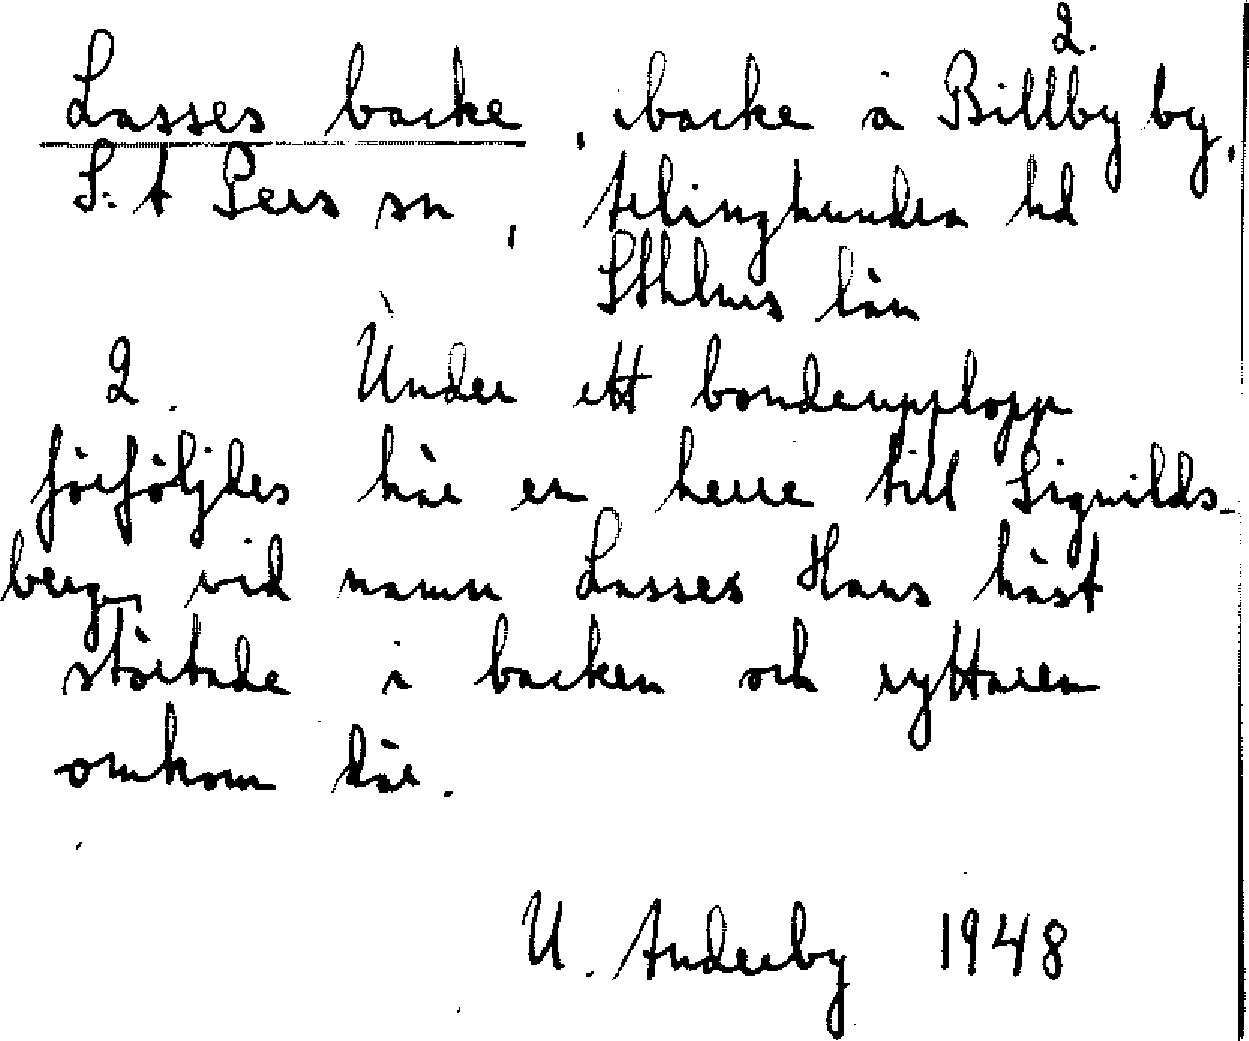 2.
Lasses backe, backe å Billby by,
S:t Pers sn, Ärlinghundra hd
Sthlms län
2. Under ett bondeupplopp
förföljdes här en herre till Signilds-
berg, vid namn Lasses Hans häst
störtade i backen och ryttaren
omkom där.
U. Anderby 1948